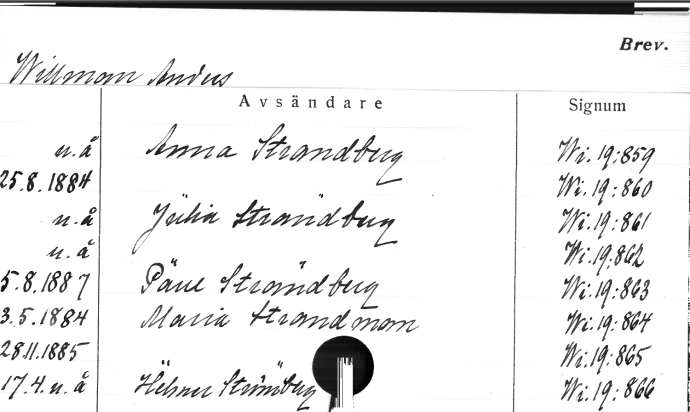 Brev.
Willman Anders
Avsändare Signum
u.å Anna Strandberg Wi.19:859
25.8.1884 Wi.19:860
u.å Julia Strandberg Wi.19:861
u.å Wi.19:862
5.8.1887 Strandberg Wi.19:863
3.5.1884 Maria Strandmom Wi.19:864
28.11.1885 Wi.19:865
17.4.u.å Wi.19:866